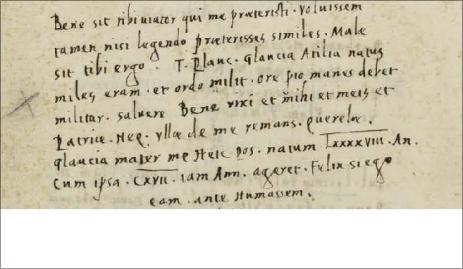 Bene sit tibi viator qui me præteristi. Voluissem
tamen nisi legendo præterisses similes. Male
sit tibi ergo. T. Planc. Glancia Atilia natus
miles eram. et ordo milit. ore pio manes debet
militar. salvere Bene vixi et mihi et meis et
Patriæ. Neq. vllæ de me remans. querelæ.
Glaucia mater me Heic pos. natum LXXXXVIII. An.
Cum ipsa. CXVII. iam Ann. ageret. Felix si ego
eam. ante Humassem.